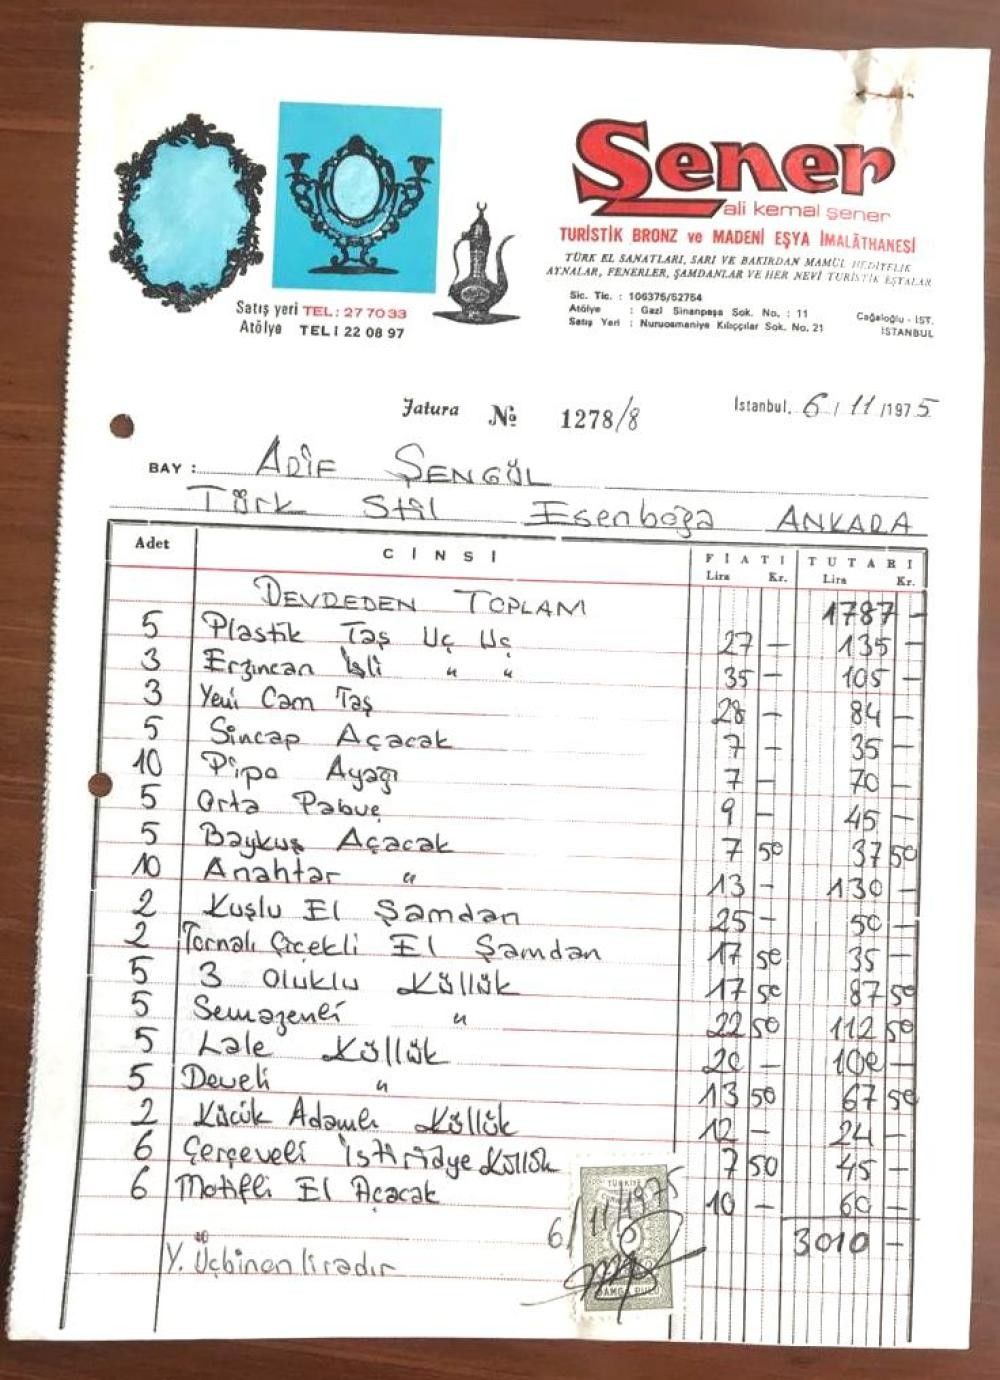 Şener
ali kemal şener
TURİSTİK BRONZ ve MADENİ EŞYA İMALÂTHANESİ
TÜRK EL SANATLARI, SARI VE BAKIRDAN MAMÜL HEDİYELİK
AYNALAR, FENERLER, ŞAMDANLAR VE HER NEVİ TURİSTİK EŞYALAR
Satış yeri TEL: 27 70 33
Atölye TEL: 22 08 97
Sic. Tic. : 106375/52754
Atölye : Gazi Sinanpaşa Sok. No. : 11
Satış Yeri : Nuruosmaniye Kılıççılar Sok. No. 21
Cağaloğlu - İST.
İSTANBUL
Fatura № 1278/8
İstanbul, 6/11/1975
BAY : ADİF ŞENGÜL
Türk Stil Esenboğa ANKARA
Adet CİNSİ FİATI TUTARI
Lira Kr. Lira Kr.
DEVREDEN TOPLAM 1787 -
5 Plastik Taş Uç Uç 27 - 135 -
3 Erzincan İşli " " 35 - 105 -
3 Yeni Cam Taş 28 - 84 -
5 Sincap Açacak 7 - 35 -
10 Pipo Ayağı 7 - 70 -
5 Orta Pabuç 9 - 45 -
5 Baykuş Açacak 7 50 37 50
10 Anahtar " 13 - 130 -
2 Kuşlu El Şamdan 25 - 50 -
2 Tornalı Çiçekli El Şamdan 17 50 35 -
5 3 Oluklu Küllük 17 50 87 50
5 Semazenli " 22 50 112 50
5 Lale Küllük 20 - 100 -
5 Develi " 13 50 67 50
2 Küçük Adamlı Küllük 12 - 24 -
6 Çerçeveli İstiridye Küllük 7 50 45 -
6 Motifli El Açacak 10 - 60 -
3010 -
Y. Üçbinon liradır
TÜRKİYE
6/11/1975
DAMGA PULU